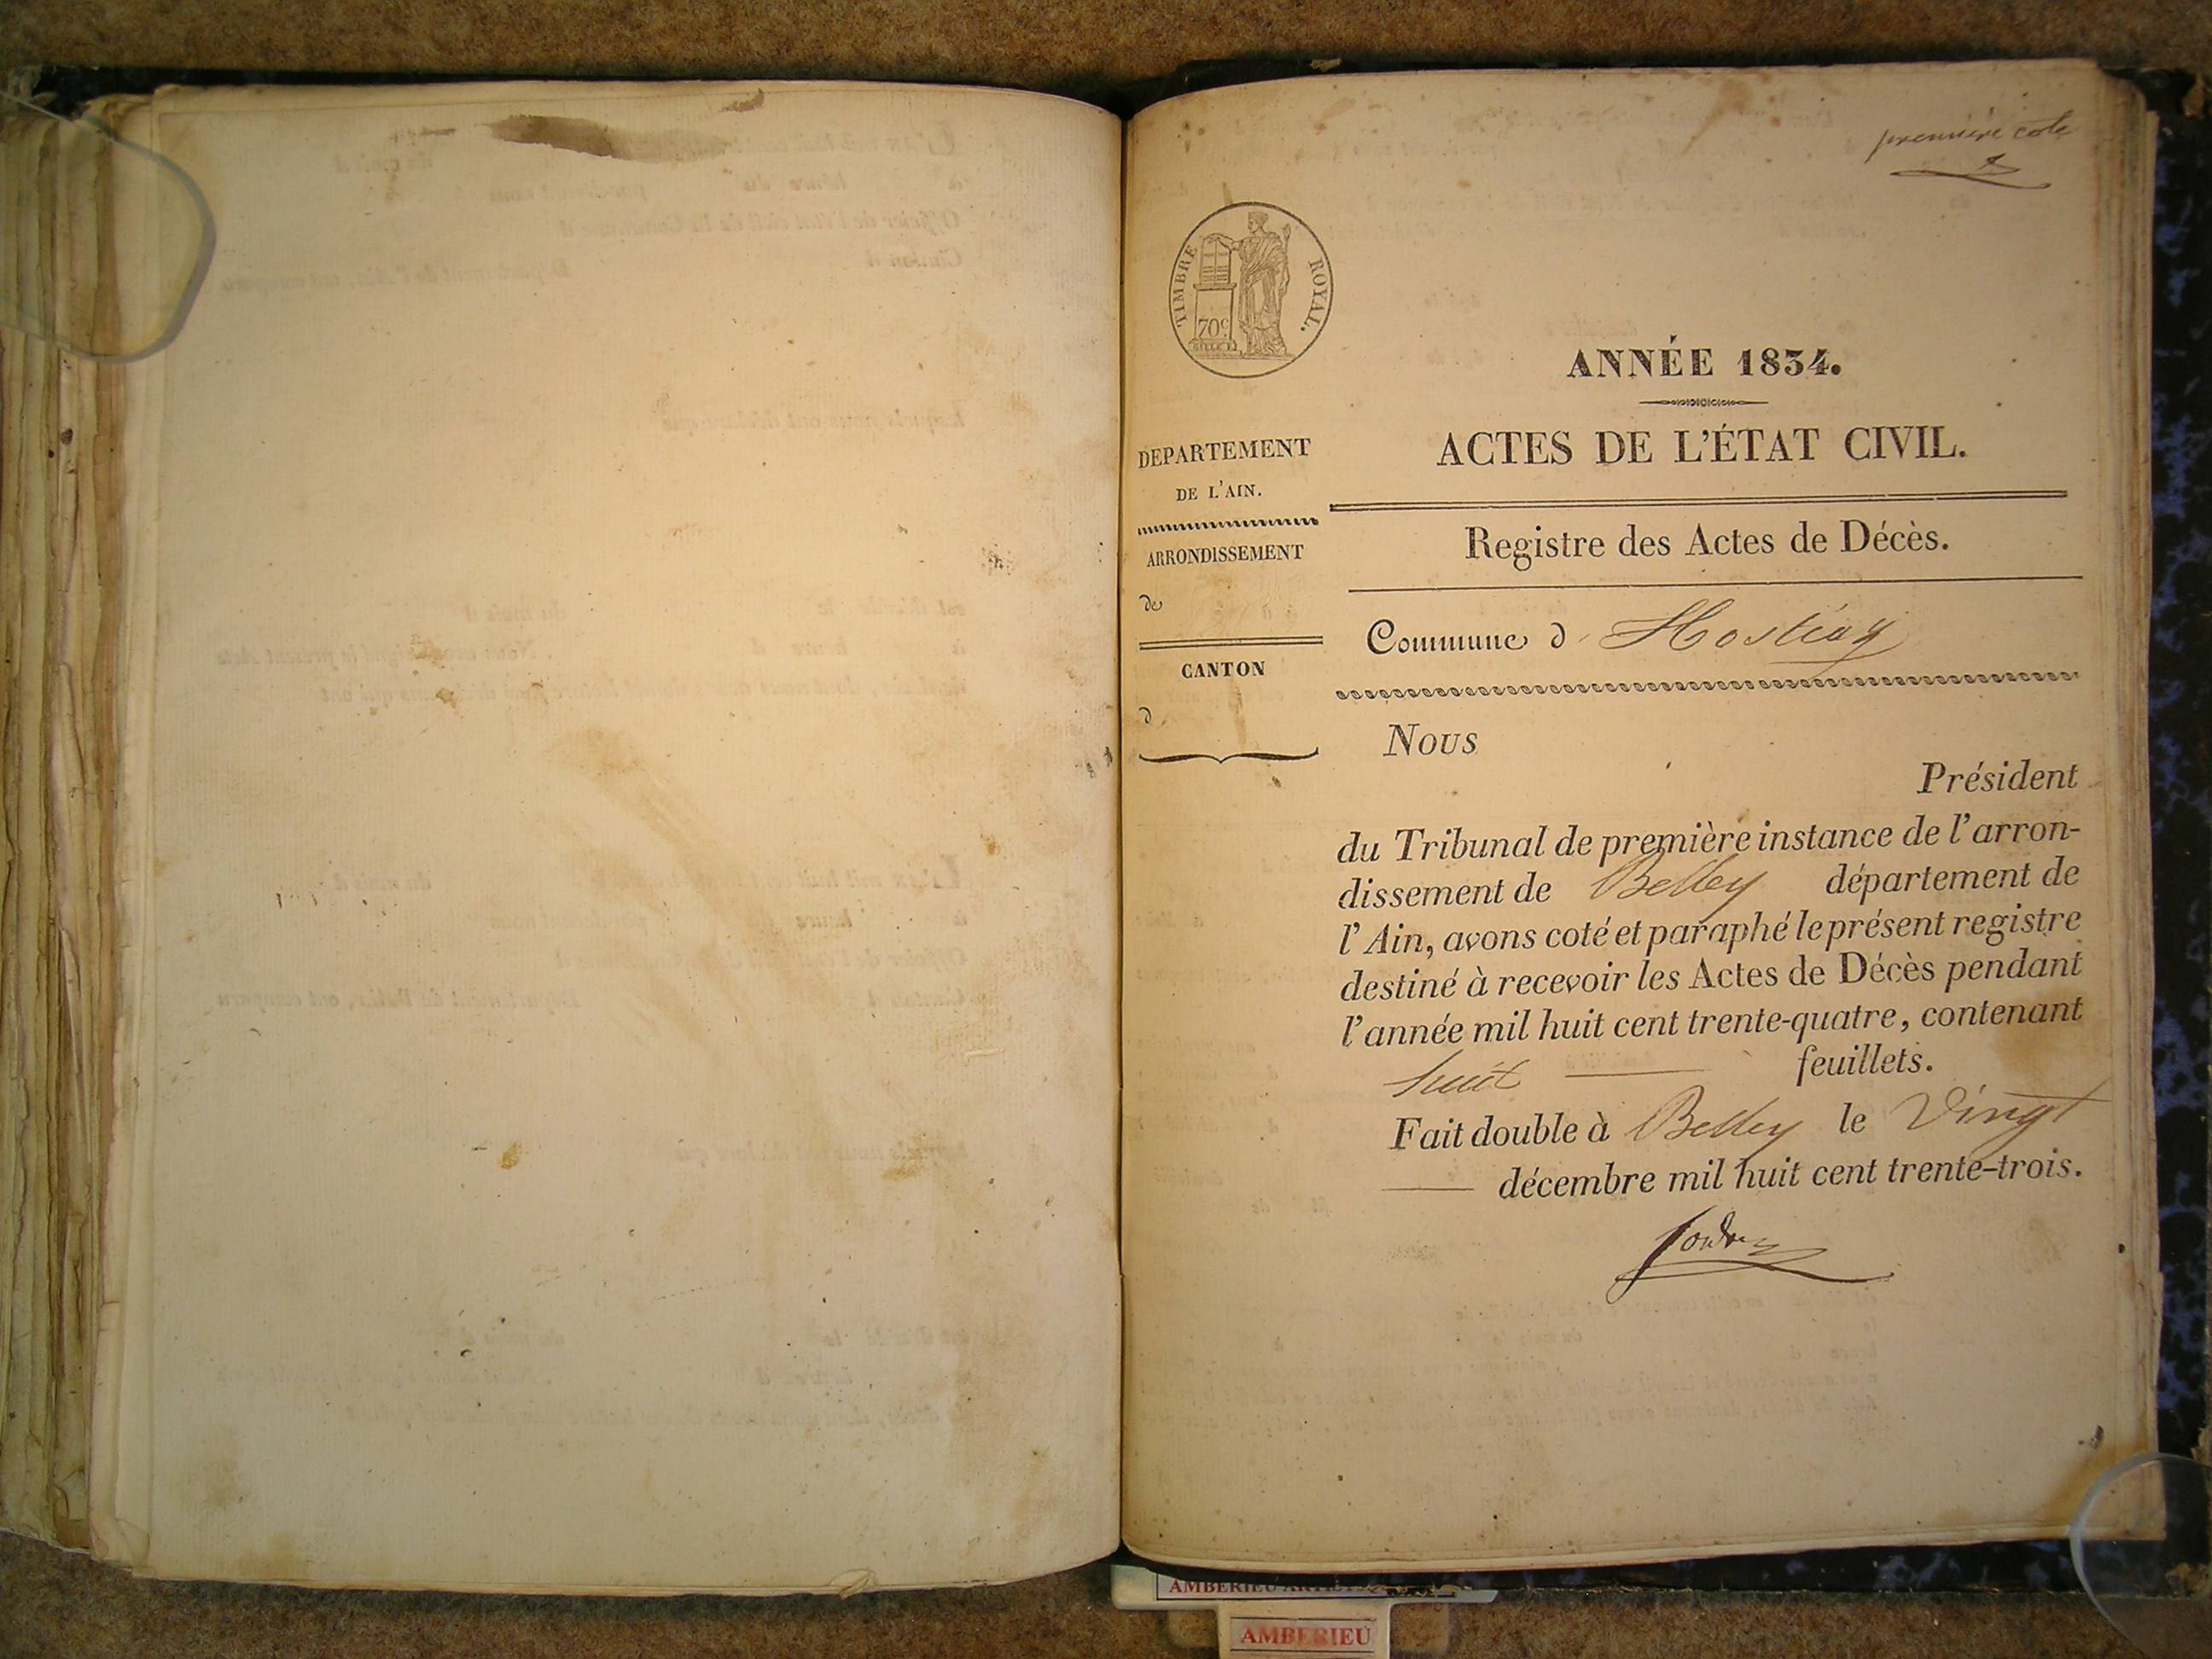 première cote
TIMBRE ROYAL.
70c
ANNÉE 1834.
ACTES DE L'ÉTAT CIVIL.
DEPARTEMENT
DE L'AIN.
ARRONDISSEMENT
de
CANTON
d
Registre des Actes de Décès.
Commune d Hostiaz
Nous
Président
du Tribunal de première instance de l'arron-
dissement de Belley département de
l'Ain, avons coté et paraphé le présent registre
destiné à recevoir les Actes de Décès pendant
l'année mil huit cent trente-quatre, contenant
huit feuillets.
Fait double à Belley le Vingt
décembre mil huit cent trente-trois.
AMBERIEU
AMBERIEU